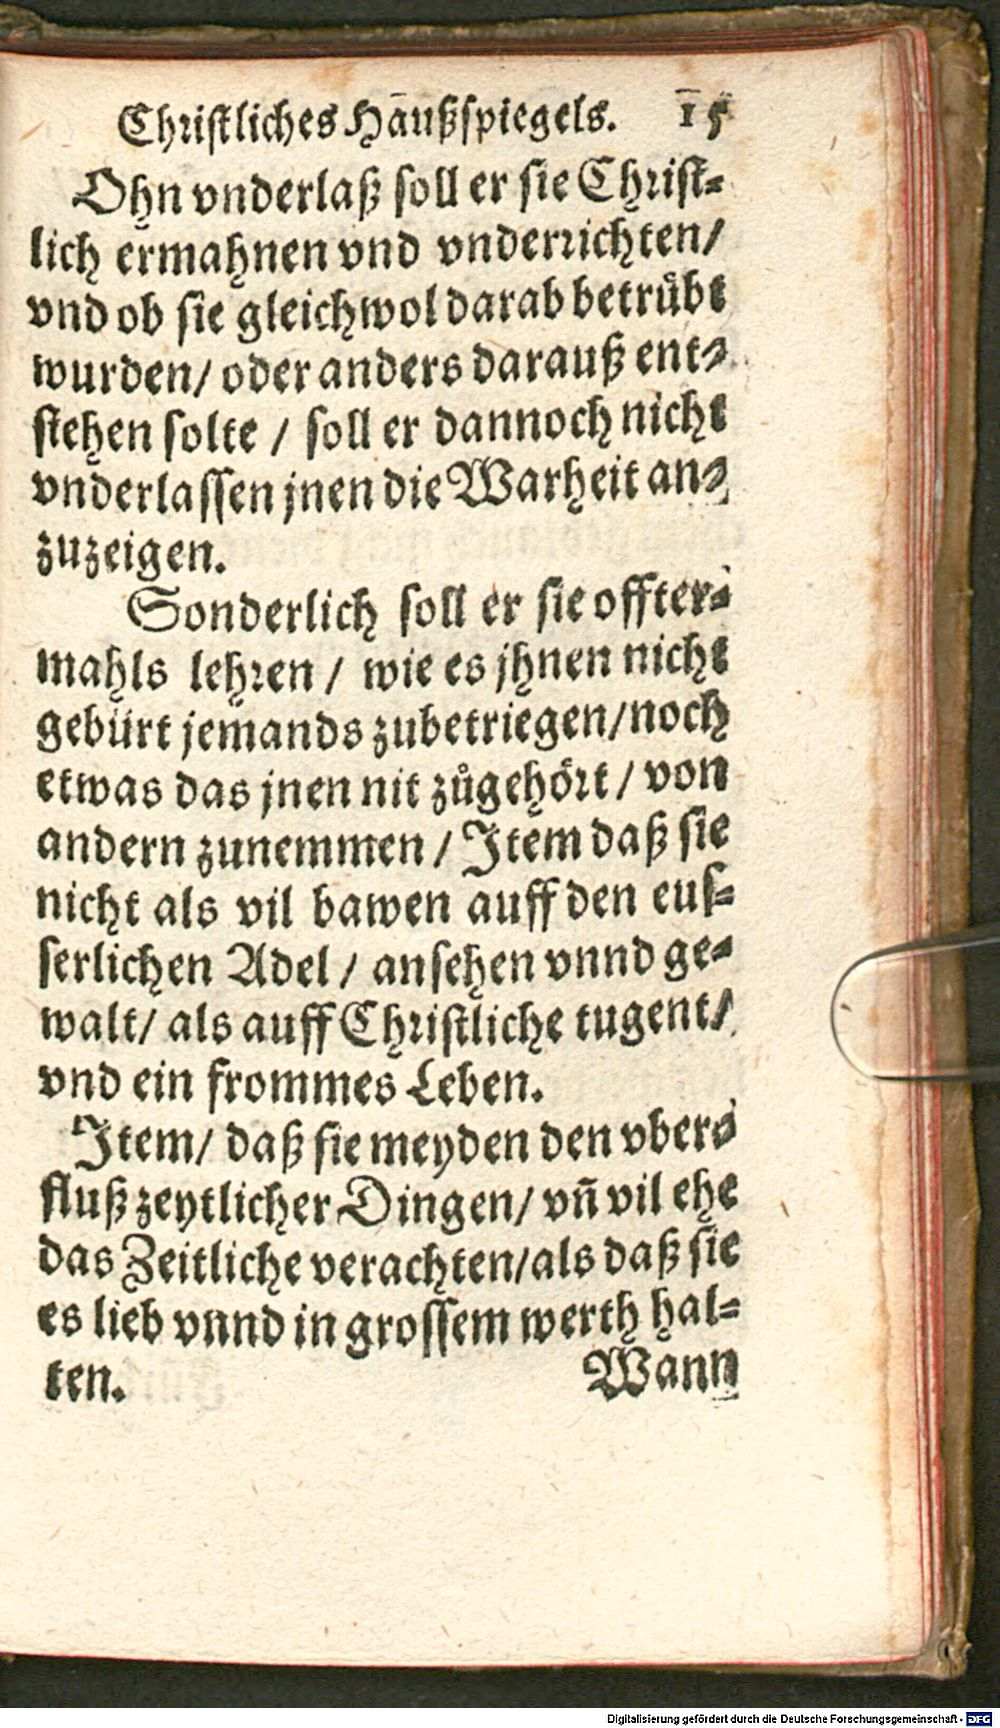 Christliches Haußspiegels. 15
Ohn vnderlaß soll er sie Christ-
lich ermahnen vnd vnderrichten/
vnd ob sie gleichwol darab betrübt
wurden/ oder anders darauß ent-
stehen solte / soll er dannoch nicht
vnderlassen jnen die Warheit an-
zuzeigen.
Sonderlich soll er sie offter-
mahls lehren / wie es jhnen nicht
gebürt jemands zubetriegen/noch
etwas das jnen nit zůgehört / von
andern zunemmen / Item daß sie
nicht als vil bawen auff den eus-
serlichen Adel / ansehen vnnd ge-
walt/ als auff Christliche tugent/
vnd ein frommes Leben.
Item/ daß sie meyden den vber-
fluß zeytlicher Dingen/ vñ vil ehe
das Zeitliche verachten/als daß sie
es lieb vnnd in grossem werth hal-
ten. Wann
Digitalisierung gefördert durch die Deutsche Forschungsgemeinschaft - DFG